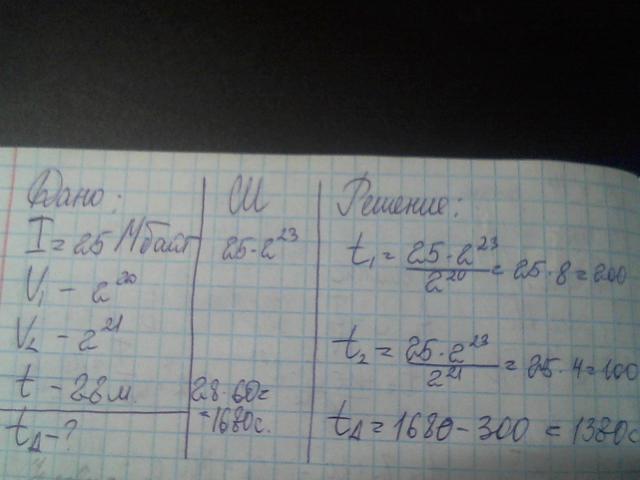 Дано:
I = 25 Мбайт
V₁ - 2²⁰
V₂ - 2²¹
t - 28 м.
t_Д - ?
СИ
25·2²³
28·60=
=1680с.
Решение:
t₁ = 25·2²³ / 2²⁰ = 25·8=200
t₂ = 25·2²³ / 2²¹ = 25·4=100
t_Д = 1680 - 300 = 1380с